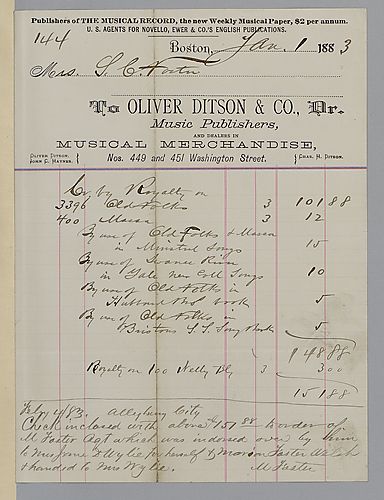 Publishers of THE MUSICAL RECORD, the new Weekly Musical Paper, $2 per annum.
U. S. AGENTS FOR NOVELLO, EWER & CO.'S ENGLISH PUBLICATIONS.
144
Boston, Jan. 1 1883
Mrs. S. C. Foster
To OLIVER DITSON & CO., Dr.
Music Publishers,
AND DEALERS IN
MUSICAL MERCHANDISE,
OLIVER DITSON.
JOHN C. HAYNES.
Nos. 449 and 451 Washington Street.
CHAS. H. DITSON.
Cr. by Royalty on
3396 Old Folks 3 101 88
400 Massa 3 12
By use of Old Folks & Massa
in Minstrel Songs 15
By use of Swanee River
in Gold Songs 10
By use of Old Folks in
Hubbard book 5
By use of Old Folks in
Song Book 5
148 88
Royalty on 100 Nelly Bly 3 3 00
151 88
Feby 4/83. Allegheny City
Check inclosed with above $151 88 to order of
M Foster Agt which was indorsed over by him
to Mrs Jane F Wylie for herself & Marion Foster Welch
& handed to Mrs Wylie. M Foster